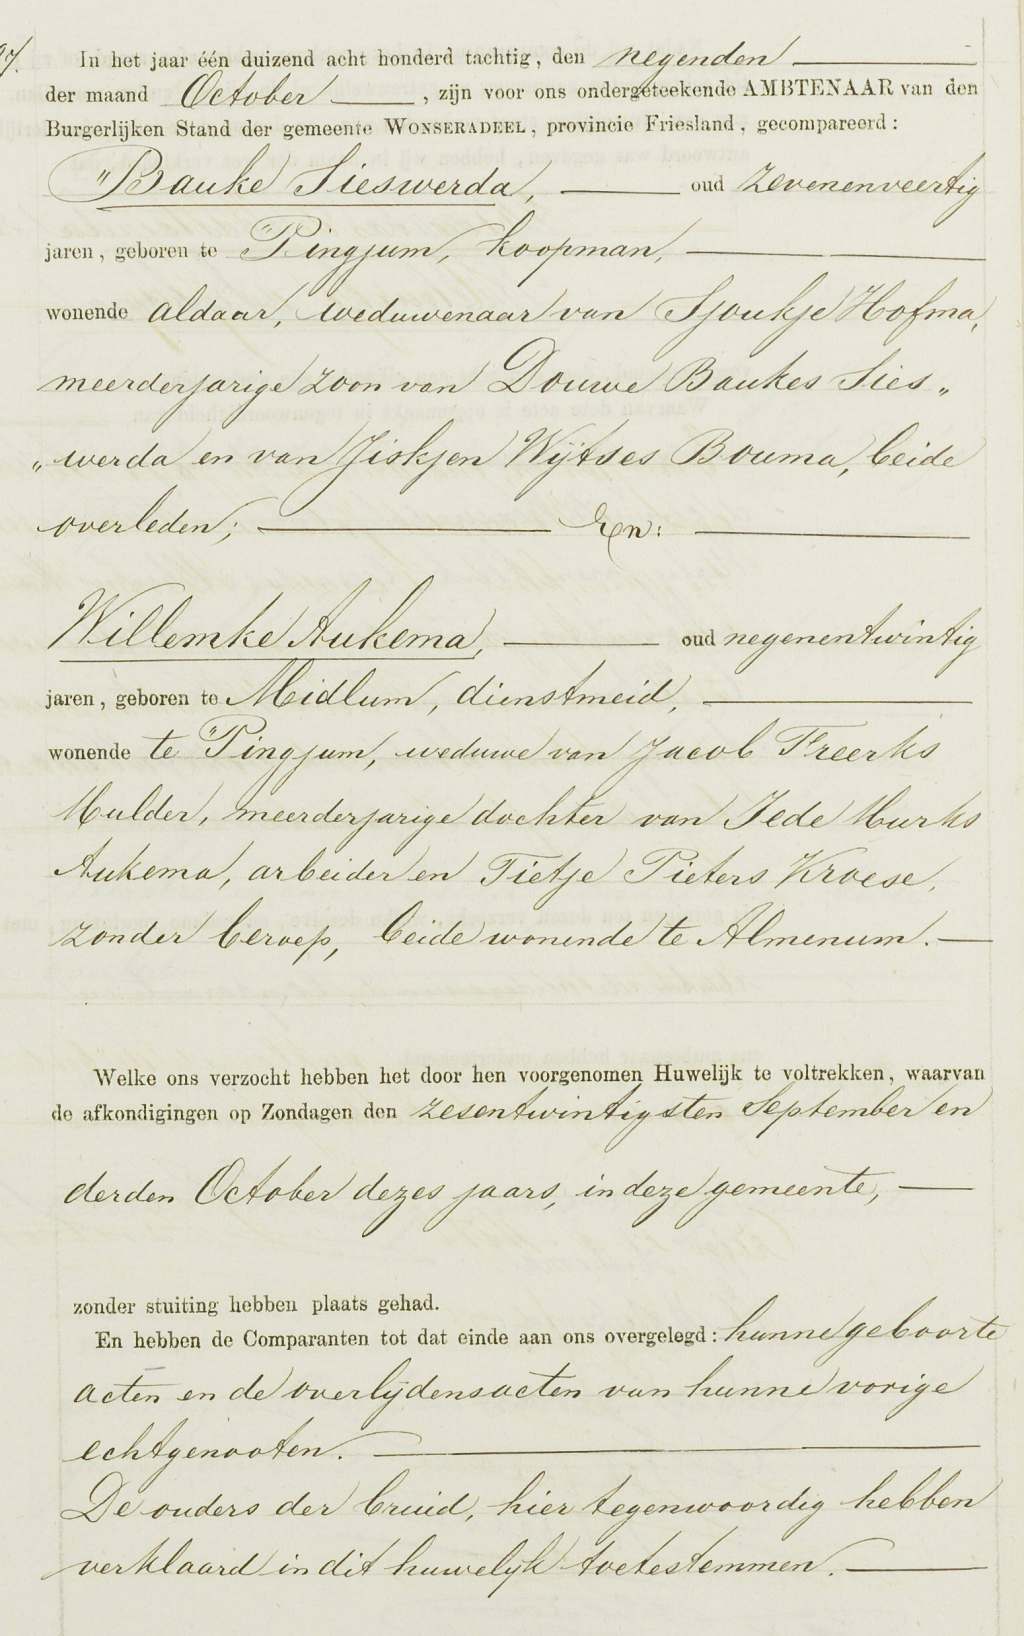 97.
In het jaar één duizend acht honderd tachtig, den negenden
der maand October, zijn voor ons ondergeteekende AMBTENAAR van den
Burgerlijken Stand der gemeente WONSERADEEL, provincie Friesland, gecompareerd:
Bauke Sieswerda, oud zevenenveertig
jaren, geboren te Pingjum, koopman,
wonende aldaar, weduwenaar van Sjoukje Hofma,
meerderjarige zoon van Douwe Baukes Sies„
„werda en van Jiskjen Wijtses Bouma, beide
overleden; En:
Willemke Aukema, oud negenentwintig
jaren, geboren te Midlum, dienstmeid,
wonende te Pingjum, weduwe van Jacob Freerks
Mulder, meerderjarige dochter van Jede Murks
Aukema, arbeider en Tietje Pieters Kroese,
zonder beroep, beide wonende te Almenum.
Welke ons verzocht hebben het door hen voorgenomen Huwelijk te voltrekken, waarvan
de afkondigingen op Zondagen den zesentwintigsten September en
derden October dezes jaars, in deze gemeente,
zonder stuiting hebben plaats gehad.
En hebben de Comparanten tot dat einde aan ons overgelegd: hunne geboorte
acten en de overlijdensacten van hunne vorige
echtgenooten.
De ouders der bruid, hier tegenwoordig hebben
verklaard in dit huwelijk toetestemmen.